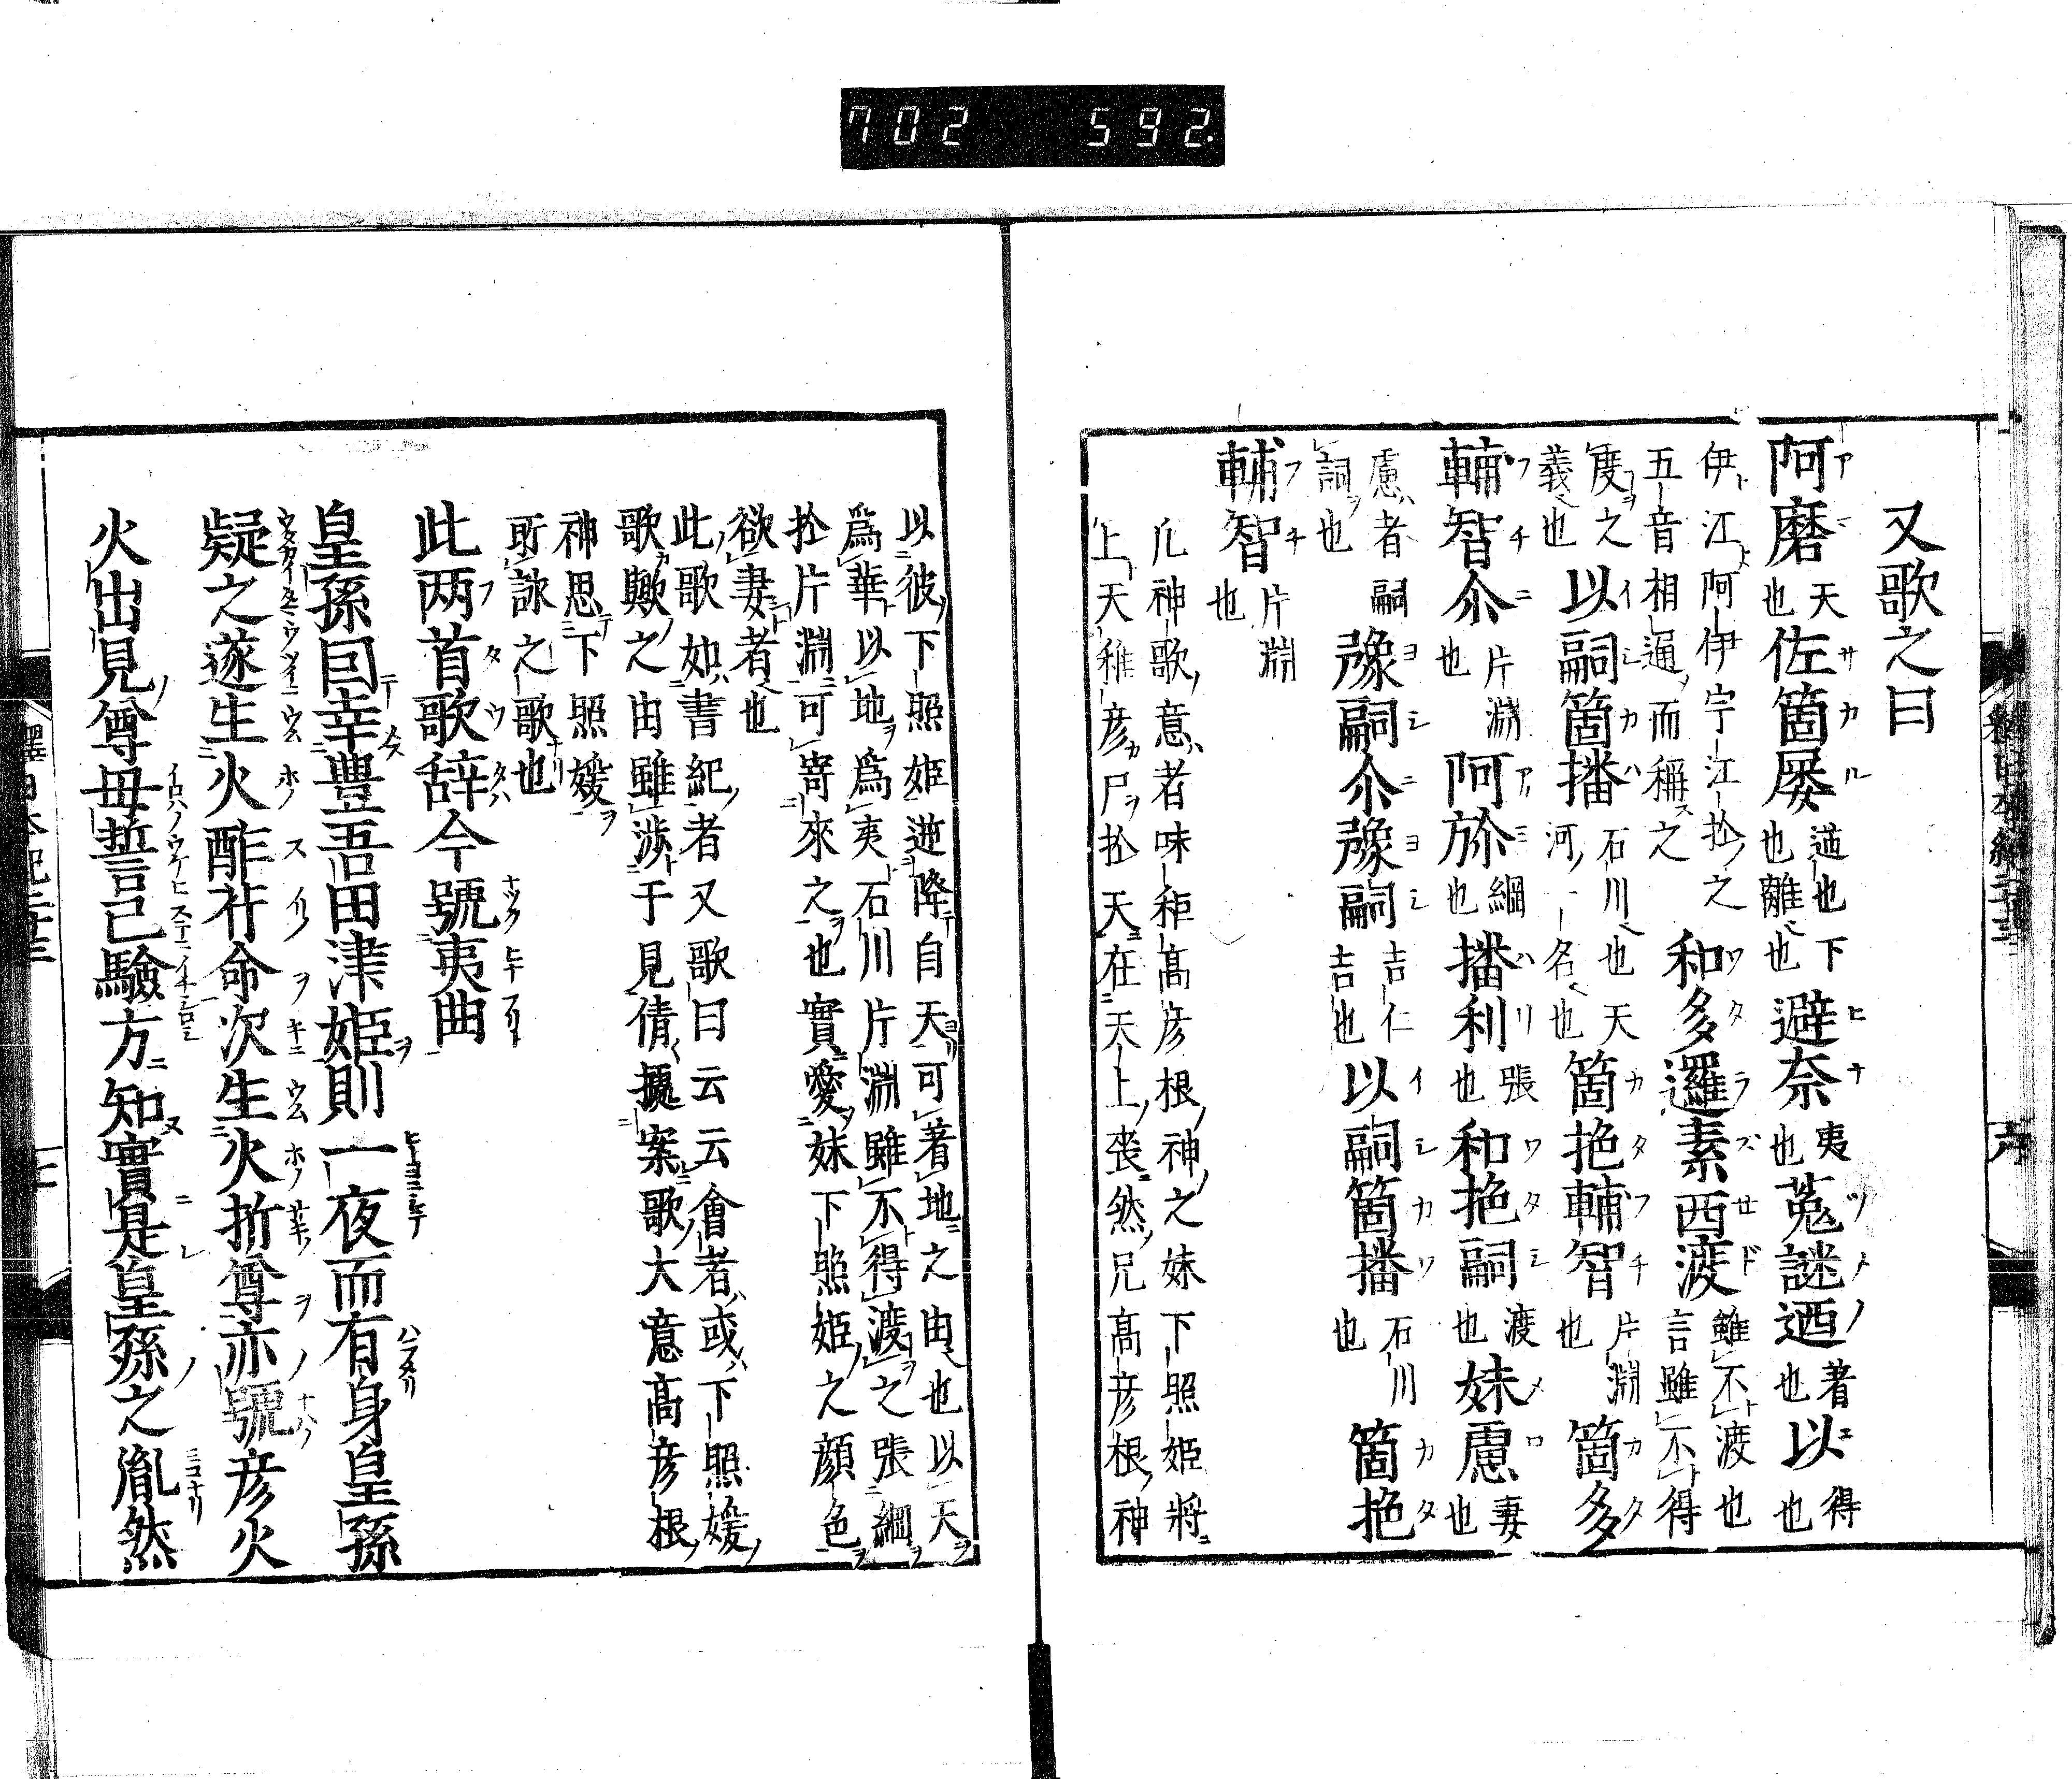 702 592.
又歌之曰
阿磨天也佐箇屡迊也下也離也避奈夷也菟謎迺著也以得也
伊江阿伊宇江於之
五音相通而稱之和多邏素西渡雖不渡也言雖不得
度之義也以嗣箇播石川也天河名也箇拖輔智片淵也箇多
輔智尒片淵也阿弥綱也播利張也和拖嗣渡也妹慮妻也
慮者嗣詞也豫嗣尒豫嗣吉仁吉也以嗣箇播石川也箇拖
輔智片淵也
凢神歌意者味秬髙彦根神之妹下照姫將
上天稚彦尸於天在天上䘮然兄髙彦根神
以彼下照姫迊降自天可著地之由也以天
爲華以地爲夷石川片淵雖不得渡之張綱
於片淵可寄來之也實愛妹下照姫之顔色
欲妻者也
此歌如書紀者又歌曰云云會者或下照媛
歌歟之由雖渉于見倩搋案歌大意髙彦根
神思下照媛
所詠之歌也
此两首歌辞今號夷曲
皇孫囙幸豊吾田津姫則一夜而有身皇孫
疑之遂生火酢芹命次生火折尊亦號彦火
火出見尊母誓已驗方知實是皇孫之胤然